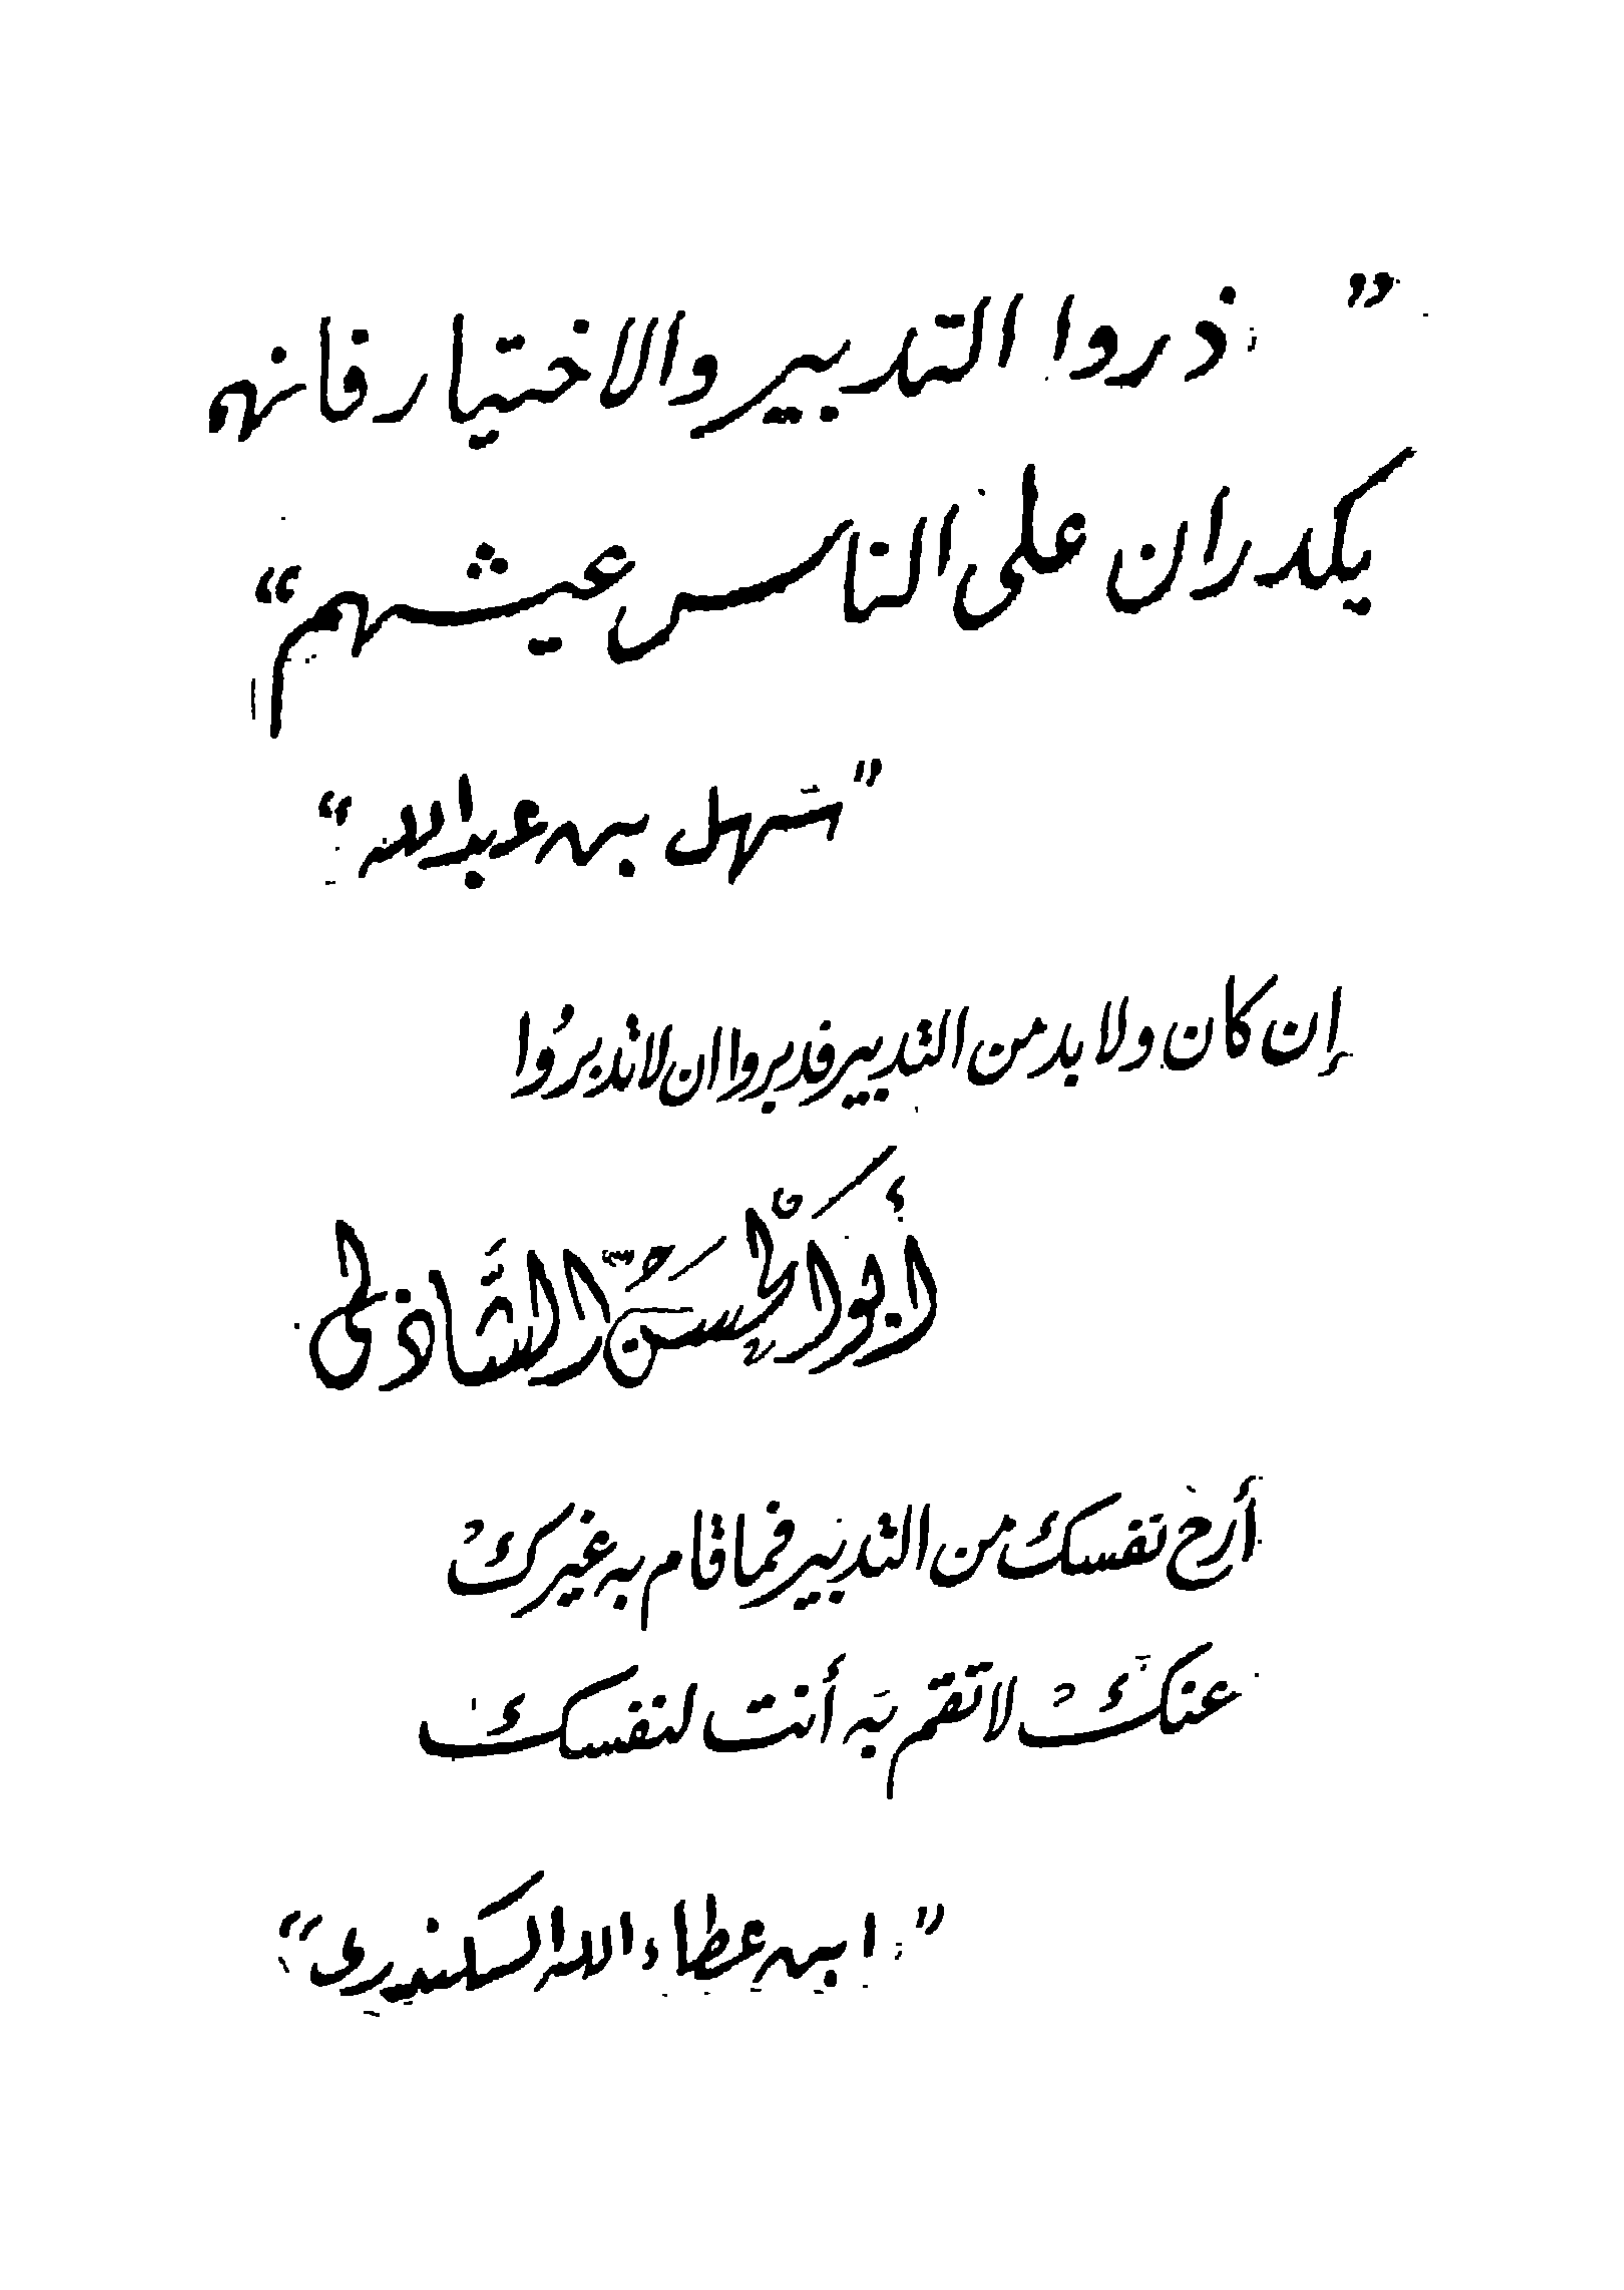 ” ذروا التدبير والاختيار فانه
يكدران على الناس عيشهم “
” سهل بن عبد الله “
إن كان ولا بد من التدبير فدبروا ان لا تدبروا
أبو الحسن الشاذلى
أرح نفسك من التدبير فما قام به غيرك
عنك لا تقم به أنت لنفسك
” ابن عطاء الله السكندرى “